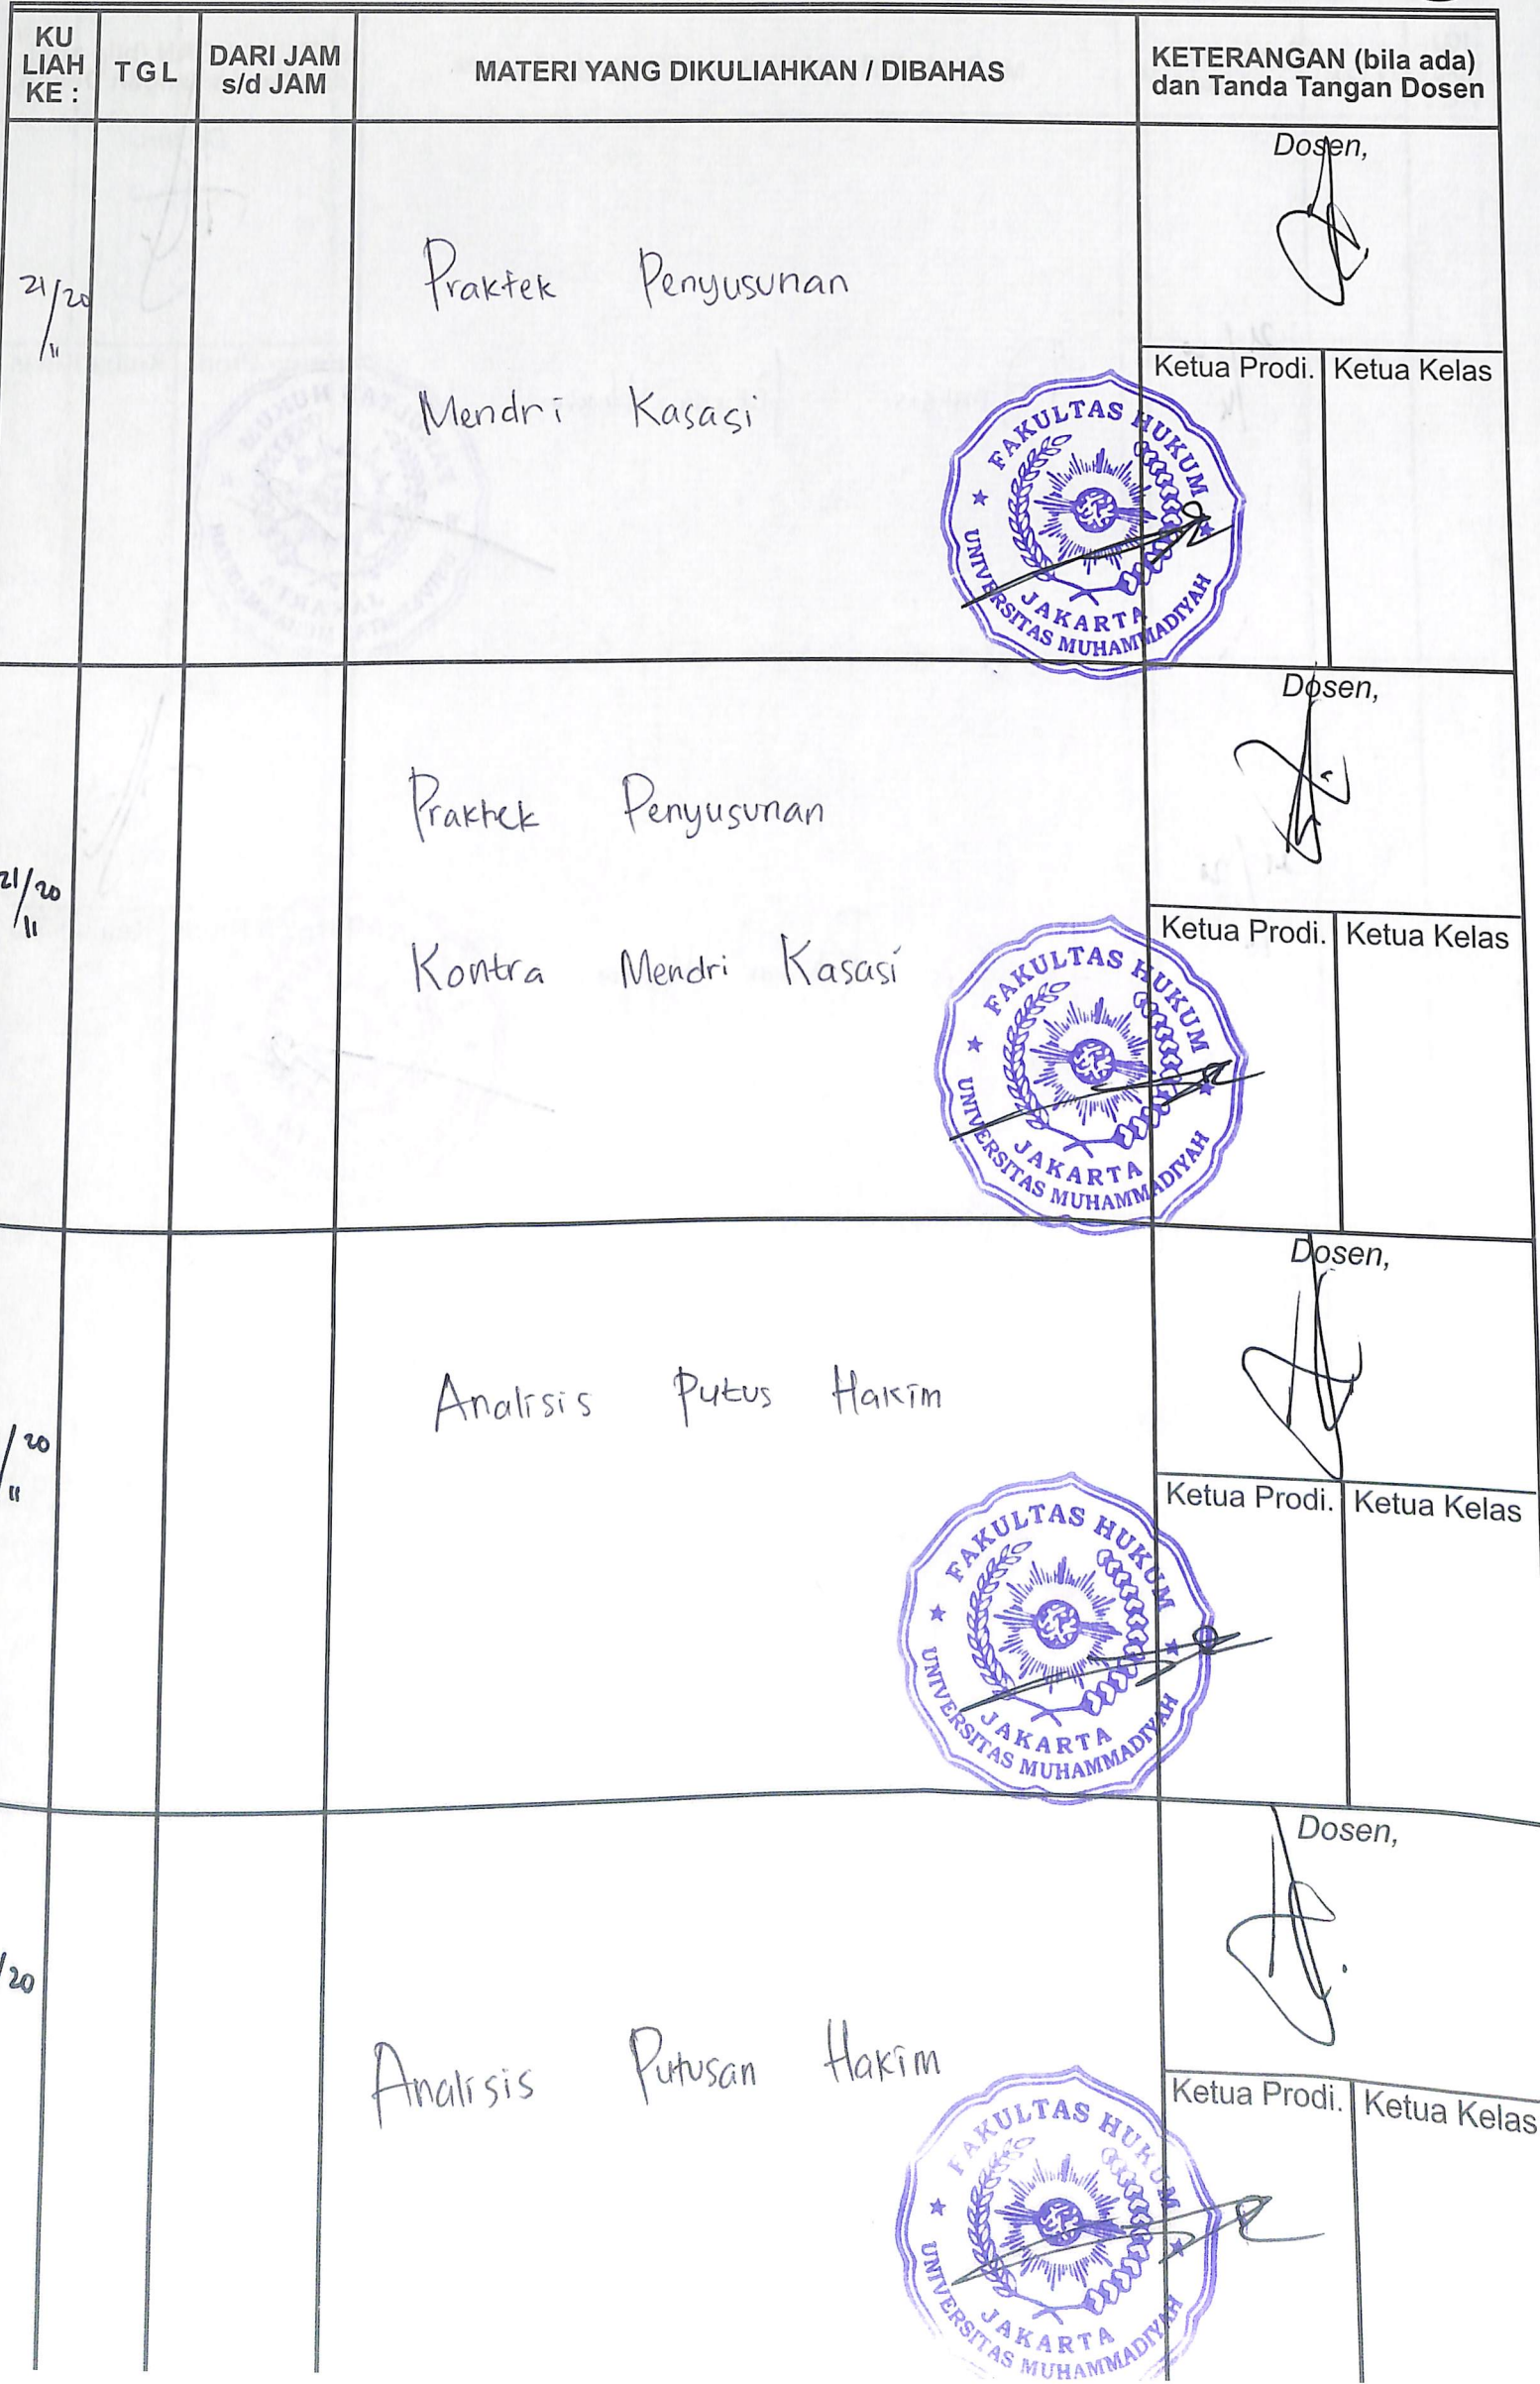 KU LIAH KE :
TGL
DARI JAM s/d JAM
MATERI YANG DIKULIAHKAN / DIBAHAS
KETERANGAN (bila ada) dan Tanda Tangan Dosen
21/20
11
Praktek Penyusunan
Mendri Kasasi
Dosen,
Ketua Prodi.
Ketua Kelas
FAKULTAS HUKUM
JAKARTA
UNIVERSITAS MUHAMMADIYAH
21/20
11
Praktek Penyusunan
Kontra Mendri Kasasi
Dosen,
Ketua Prodi.
Ketua Kelas
FAKULTAS HUKUM
JAKARTA
UNIVERSITAS MUHAMMADIYAH
/20
11
Analisis Putus Hakim
Dosen,
Ketua Prodi.
Ketua Kelas
FAKULTAS HUKUM
JAKARTA
UNIVERSITAS MUHAMMADIYAH
/20
Analisis Putusan Hakim
Dosen,
Ketua Prodi.
Ketua Kelas
FAKULTAS HUKUM
JAKARTA
UNIVERSITAS MUHAMMADIYAH